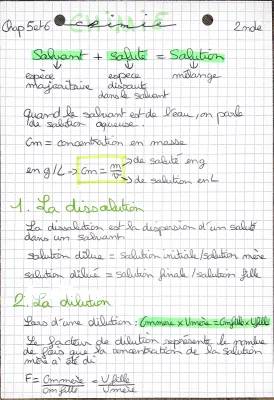 Chap 5et6 CHIMIE 2nde
Solvant + soluté = Solution
espèce espèce mélange
majoritaire dissoute
dans le solvant
Quand le solvant est de l'eau, on parle
de solution aqueuse.
Cm = concentration en masse
en g/L → Cm = m/V → de soluté en g
→ de solution en L
1. La dissolution
La dissolution est la dispersion d'un soluté
dans un solvant
solution diluée = solution initiale/solution mère
solution diluée = solution finale/solution fille
2. La dilution
Lors d'une dilution : Cmmère x Vmère = Cmfille x Vfille
Le facteur de dilution représente le nombre
de fois que la concentration de la solution
mère a été di
F = Cmmère/Cmfille = Vfille/Vmère